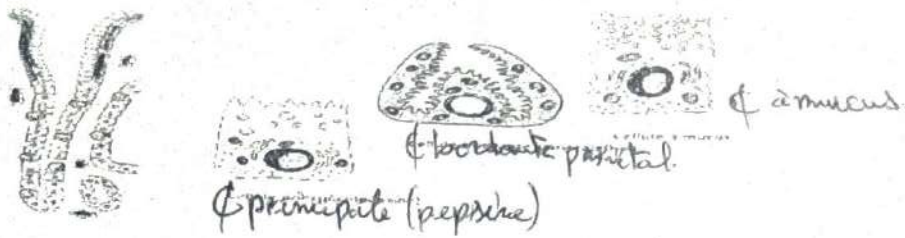 ₵ à mucus
₵ bordante pariétal
₵ principale (pepsine)